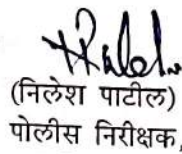 (निलेश पाटील)
पोलीस निरीक्षक,